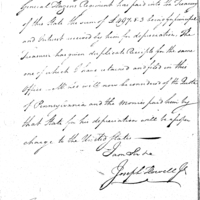 General Hazens Regiment has paid into the Treasury
of this State the sum of $497.83 being for principal
and interest received by him for depreciation. The
Treasurer has given duplicate Receipts for the same
one of which I have retained and filed in this
Office. He is now considered of the State
of Pennsylvania and the monies paid him by
that State for his depreciation will be
charge to the United States
I am Sir &c
Joseph Howell Jr.